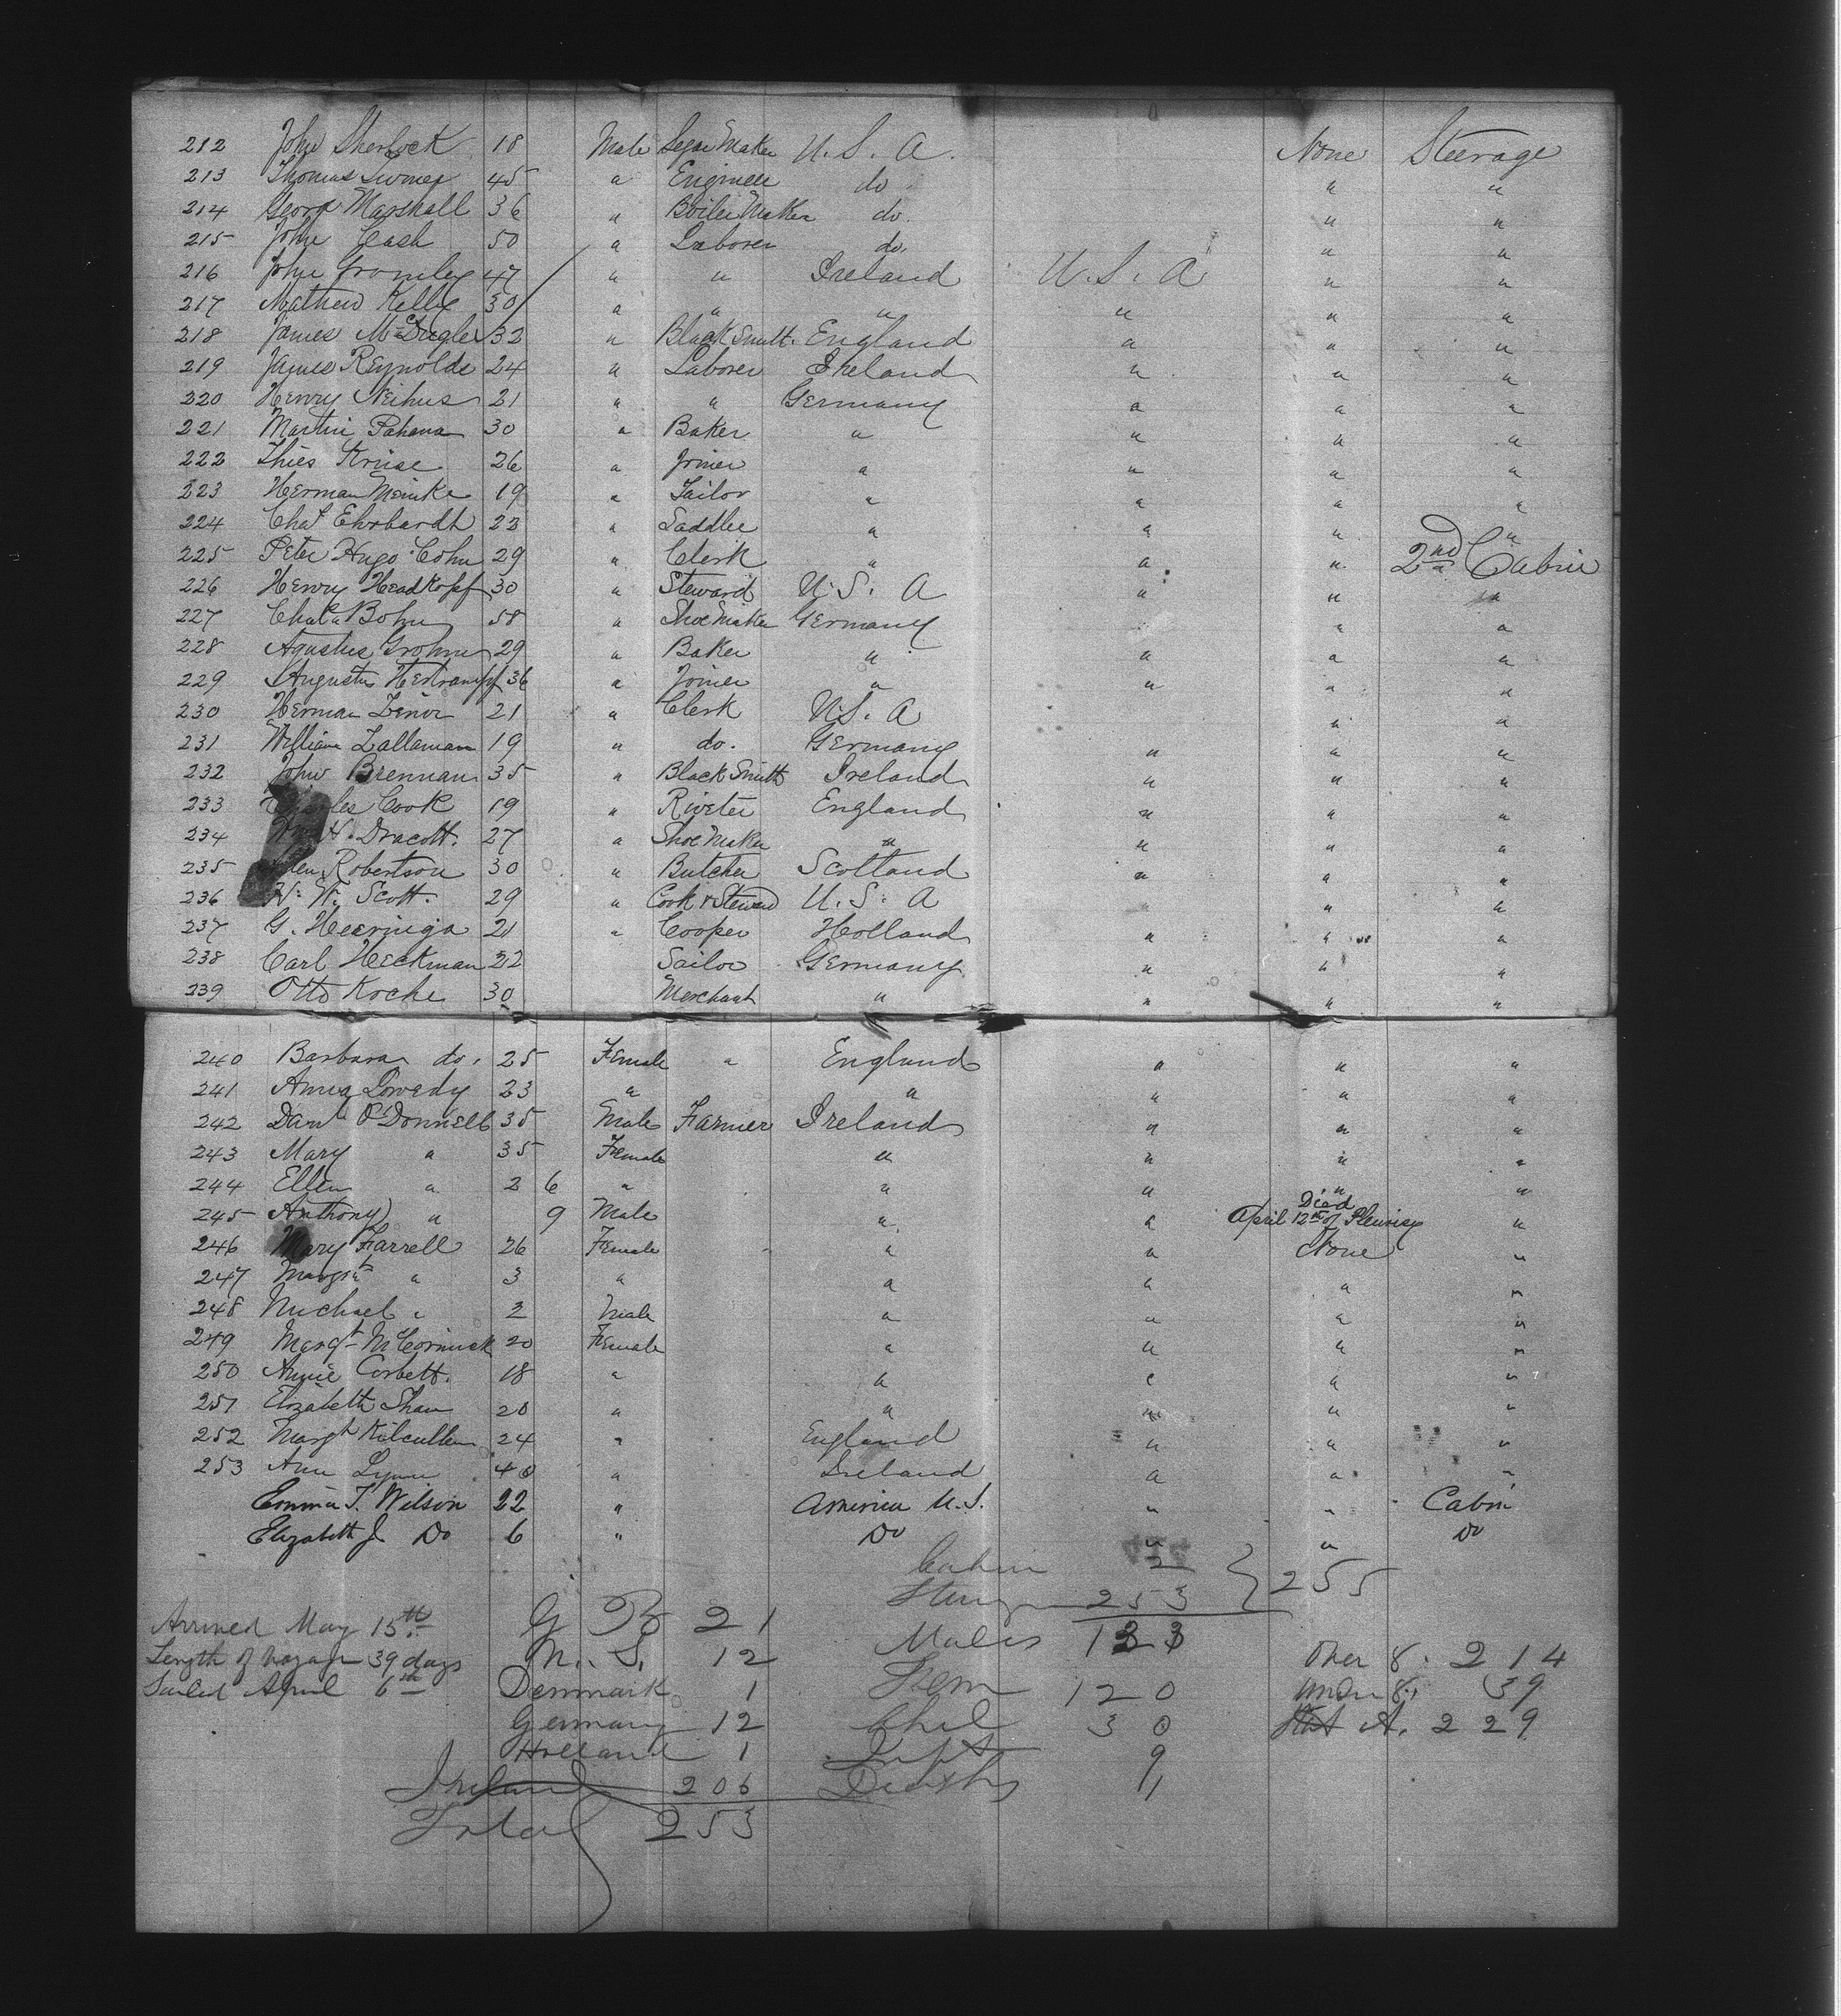 212 John Sherlock 18 Male Segar Maker U. S. A. None Steerage
213 Thomas 45 " Engineer do " "
214 Georg Marshall 36 " Boiler Maker do. " "
215 John Cash 50 " Laborer do, " "
216 John Gromley 47 " " Ireland U. S. A " "
217 Mathew Kelly 30 " " " " " "
218 James 32 " Black Smith. England " " "
219 James Reynolds 24 " Laborer Ireland " " "
220 Henry Neihus 21 " " Germany " " "
221 Martin Pahana 30 " Baker " " " "
222 Thies Kruse 26 " Joiner " " " "
223 Herman Meinke 19 " Tailor " " " "
224 Chas Ehrhardt 23 " Saddler " " " "
225 Peter Hugo Cohn 29 " Clerk " " " 2nd Cabin
226 Henry Headkopf 30 " Steward U. S. A " " "
227 Chas Bohn 58 " Shoe Maker Germany " "
228 Agustus Grohn 29 " Baker " " " "
229 Augustus 36 " Joiner " " " "
230 Herman 21 " Clerk U. S. A " "
231 William Lallaman 19 " do. Germany " " "
232 John Brennan 35 " Black Smith Ireland " " "
233 Charles Cook 19 " Riveter England " " "
234 H. Dracott. 27 " Shoe Maker " " " "
235 Robertson 30 " Butcher Scotland " " "
236 H. W. Scott. 29 " Cook & Steward U. S. A " " "
237 G. Heeringa 21 " Cooper Holland " " "
238 Carl Heckman 22 Sailor Germany " " "
239 Otto Koche 30 Merchant " " " "
240 Barbara do. 25 Female " England " " "
241 Anna 23 " " " " "
242 Danl O'Donnell 35 Male Farmer Ireland " " "
243 Mary " 35 Female " " " "
244 Ellen " 2 6 " " " " "
245 Anthony " 9 Male " " Died April 12th of Pleurisy "
246 Mary Farrell 26 Female " " None "
247 Margrt " 3 " " " " "
248 Michael " 2 Male " " " "
249 Margt McCormick 20 Female " " " "
250 Annie Corbett. 18 " " " " "
251 Elizabeth Shaw 20 " " " " "
252 Margt Kilcullen 24 " England " " "
253 Ann Lynn 40 " Ireland " " "
Emma T. Wilson 22 " America U. S. " " Cabin
Elizabeth J Do 6 " Do " " Do
Cabin 2
Steerage 253 } 255
Arrived May 15th G B 21 Males 133
Length of voyage 39 days U. S. 12 Over 8. 214
Sailed April 6th Denmark 1 Fem 120 under 8. 39
Germany 12 Chil 30 A. 229
Holland 1 Inft 9
Ireland 206 Deaths 1
Total 253